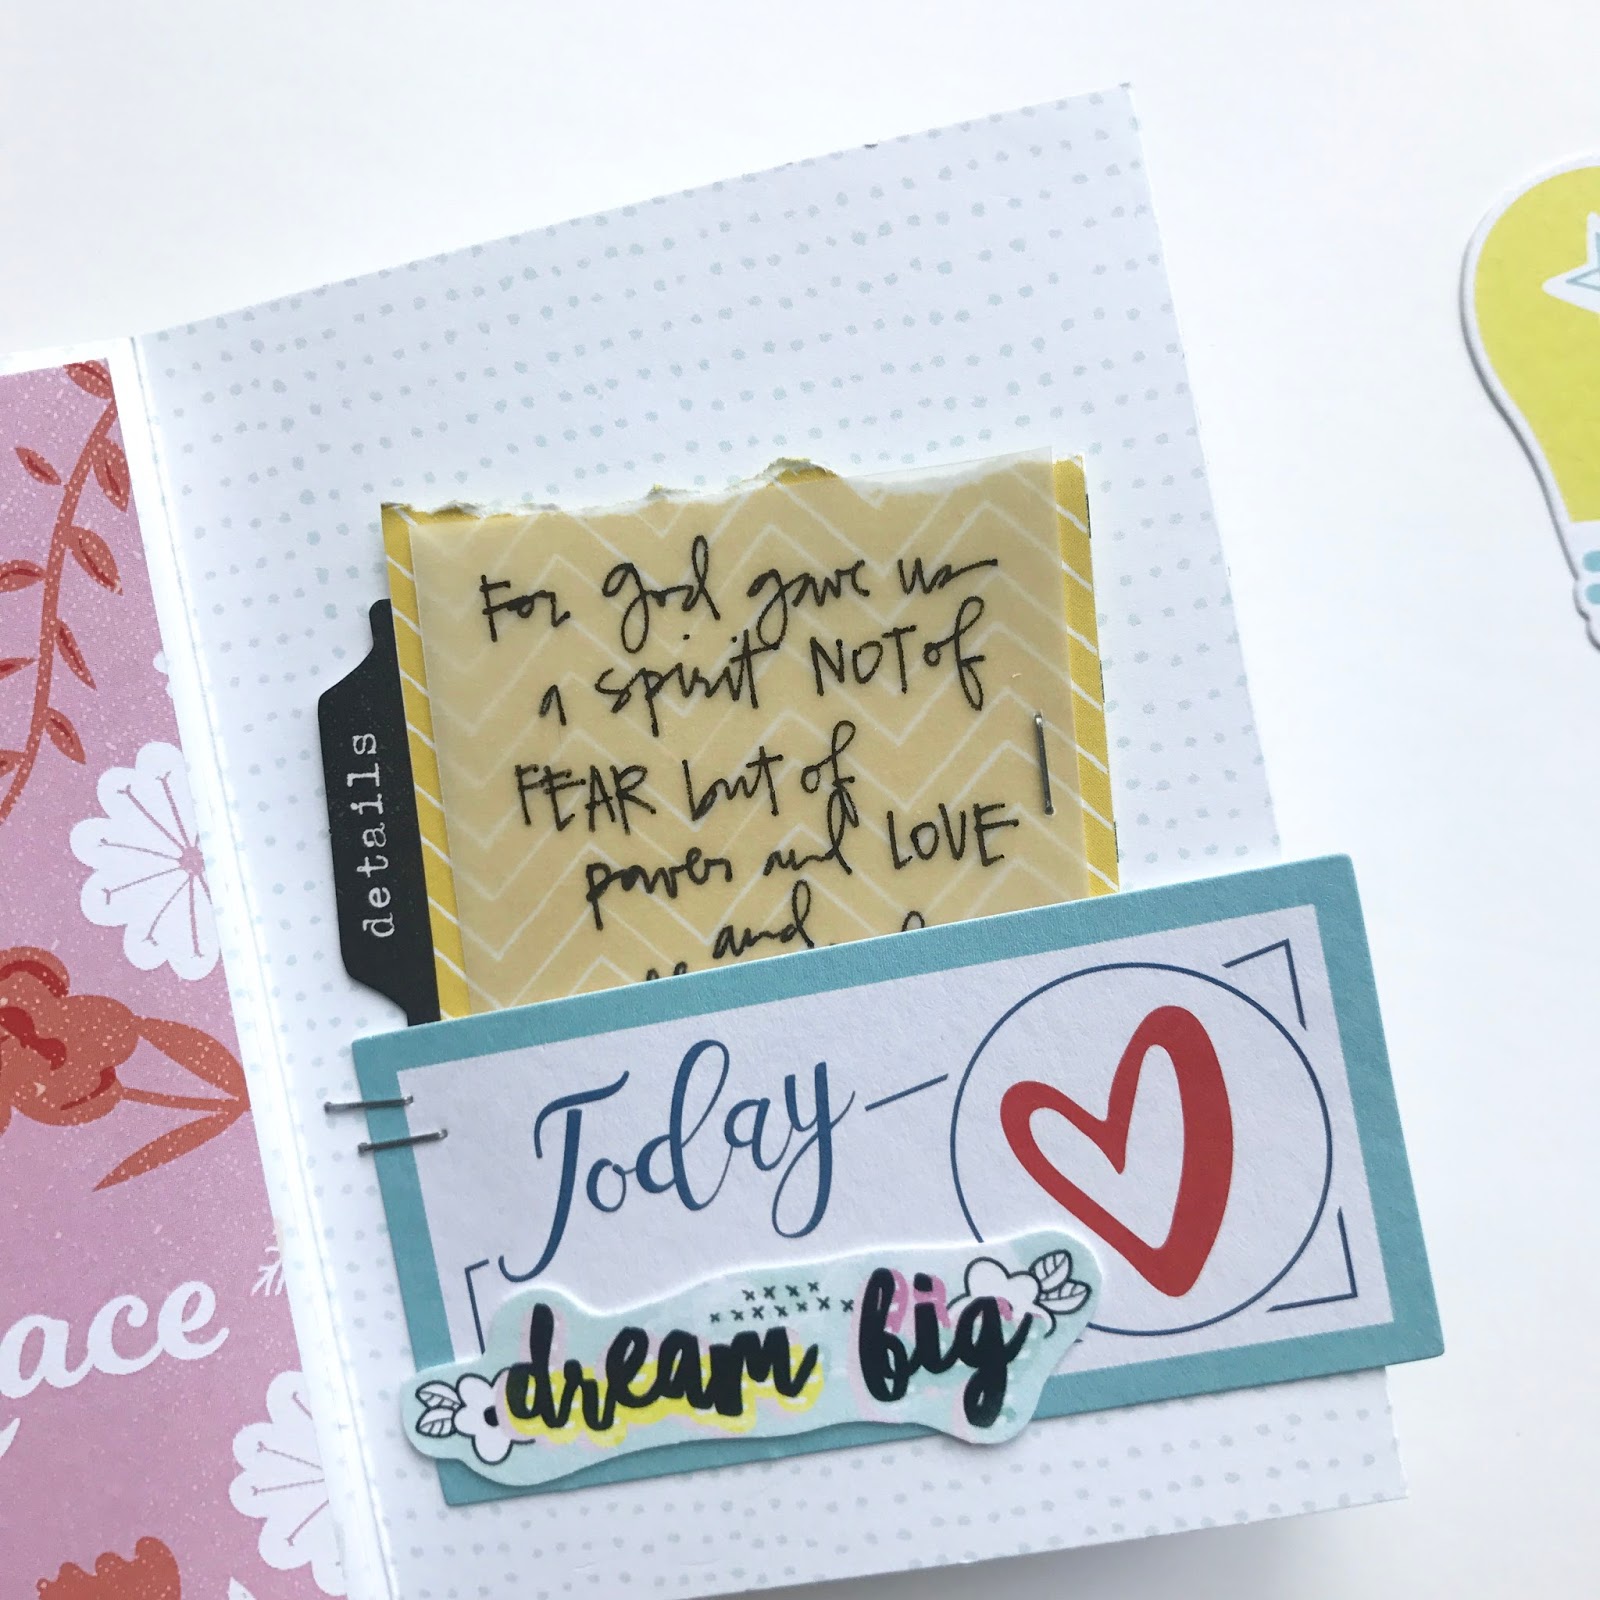 For God gave us
a spirit NOT of
FEAR but of
power and LOVE
and
details
Today
dream big
ace